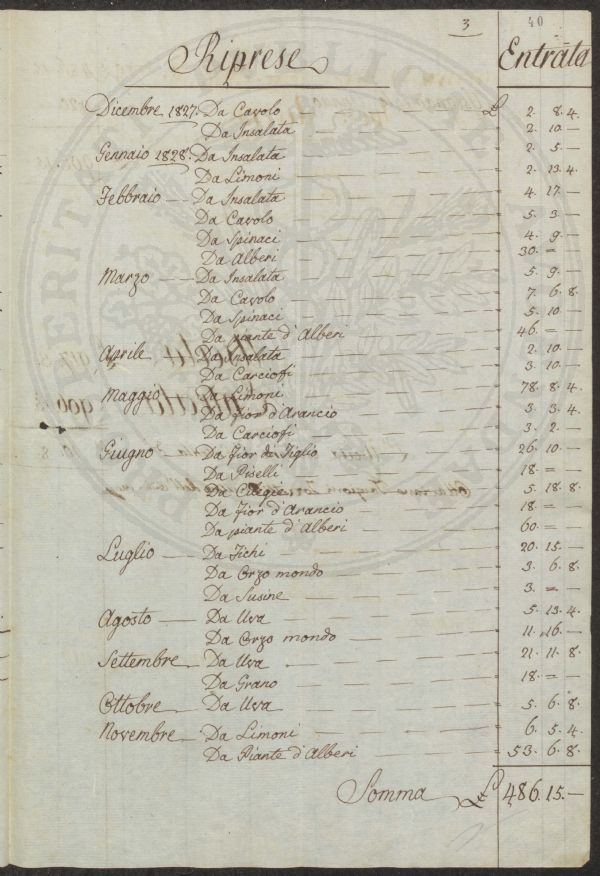 3
40
Riprese
Entrata
Dicembre 1827. Da Cavolo £ 2. 8. 4.
Da Insalata 2. 10. —
Gennaio 1828. Da Insalata 2. 5. —
Da Limoni 2. 13. 4.
Febbraio — Da Insalata 4. 17. —
Da Cavolo 5. 3. —
Da Spinaci 4. 9. —
Da Alberi 30. = —
Marzo — Da Insalata 5. 9. —
Da Cavolo 7. 6. 8.
Da Spinaci 5. 10. —
Da piante d'Alberi 46. = —
Aprile Da Insalata 2. 10. —
Da Carciofi 3. 10. —
Maggio Da Limoni 78. 8. 4.
Da Fior d'Arancio 3. 3. 4.
Da Carciofi 3. 2. —
Giugno — Da Fior di Tiglio 26. 10. —
Da Piselli 18. = —
Da Ciliegie 5. 18. 8.
Da Fior d'Arancio 18. = —
Da piante d'Alberi 60. = —
Luglio — Da Fichi 20. 15. —
Da Orzo mondo 3. 6. 8.
Da Susine 3. = —
Agosto — Da Uva 5. 13. 4.
Da Orzo mondo 11. 16. —
Settembre — Da Uva 21. 11. 8.
Da Grano 18. = —
Ottobre — Da Uva 5. 6. 8.
Novembre — Da Limoni 6. 5. 4.
Da Piante d'Alberi 53. 6. 8.
Somma £ 486. 15. —